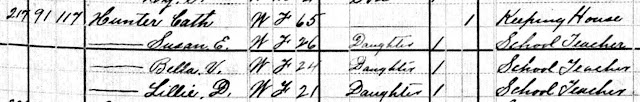 217 91 117 Hunter Cath W F 65 1 Keeping House
—— Susan E. W F 26 Daughter 1 School Teacher
—— Bella V. W F 24 Daughter 1 School Teacher
—— Lillie D. W F 21 Daughter 1 School Teacher